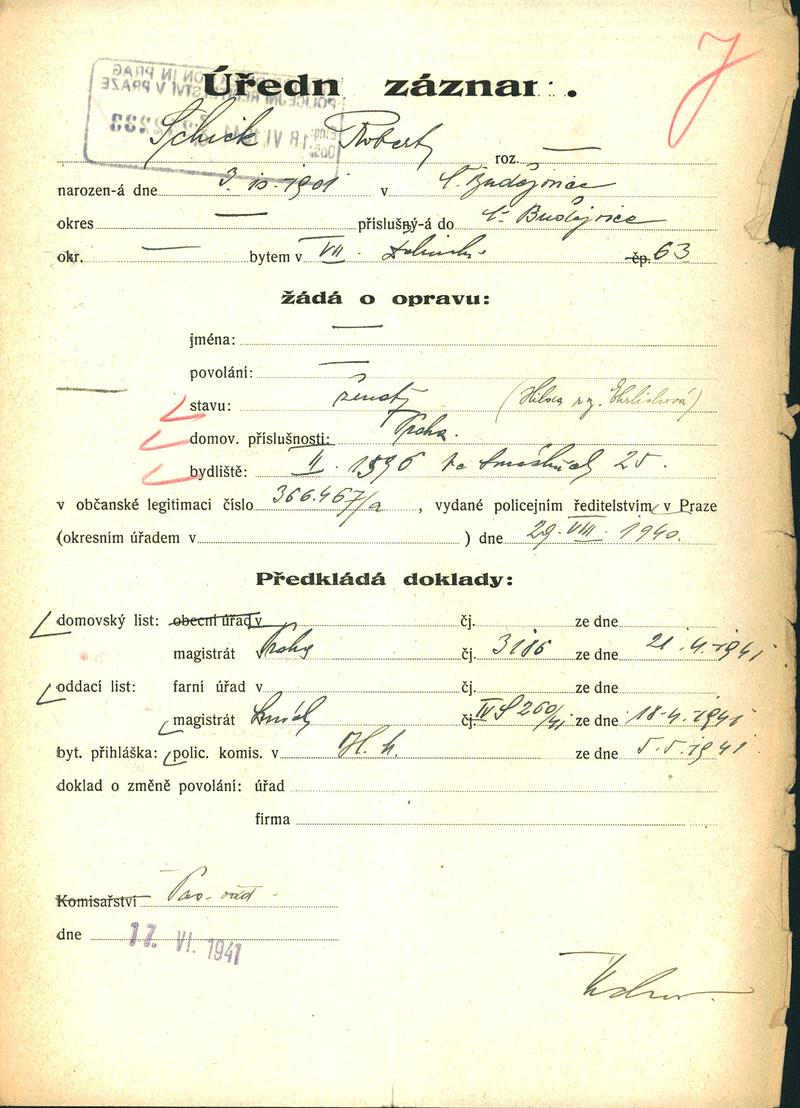 Úředn záznam.
Schick Robert roz. —
narozen-á dne 3. 10. 1901 v Č. Budějovice
okres — příslušný-á do Č. Budějovice
okr. — bytem v VII. čp. 63
žádá o opravu:
jména: —
povolání: —
stavu: ženatý (Hilsa roz. Ehrlichová)
domov. příslušnosti: Praha.
bydliště: II. 1896 Ve Smečkách 25.
v občanské legitimaci číslo 366.467/a, vydané policejním ředitelstvím v Praze
(okresním úřadem v ) dne 29. VIII. 1940.
Předkládá doklady:
domovský list: obecní úřad v čj. ze dne
magistrát v Prahy čj. 3186 ze dne 21. 4. 1941
oddací list: farní úřad v čj. ze dne
magistrát čj. IV S 260/41 ze dne 18. 4. 1941
byt. přihláška: polic. komis. v H. h. ze dne 5. 5. 1941
doklad o změně povolání: úřad
firma
Komisařství Pas. odd.
dne 17. VI. 1941